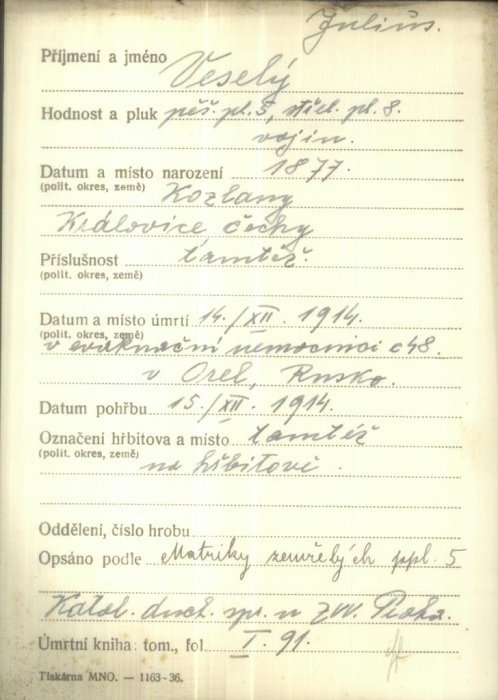 Julius.
Příjmení a jméno Veselý
Hodnost a pluk pěš. pl. 5, střel. pl. 8.
vojin.
Datum a místo narození 1877.
(polit. okres, země) Kozlany
Královice, čechy
Příslušnost tamtéž.
(polit. okres, země)
Datum a místo úmrtí 14./XII. 1914.
(polit. okres, země)
v evakuační nemocnici č 48.
v Orel, Rusko.
Datum pohřbu 15./XII. 1914.
Označení hřbitova a místo tamtéž
(polit. okres, země) na hřbitově.
Oddělení, číslo hrobu
Opsáno podle Matriky zemřelých ppl. 5
Katol. duch. spr. u ZVV. Praha.
Úmrtní kniha: tom., fol. I. 91.
Tiskárna MNO. — 1163-36.